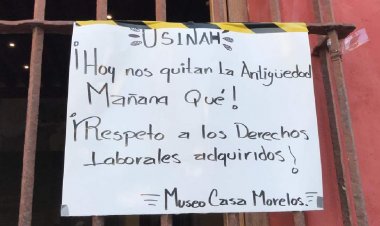 USINAH
¡Hoy nos quitan la Antigüedad
Mañana Qué!
¡Respeto a los Derechos
Laborales adquiridos!
Museo Casa Morelos.